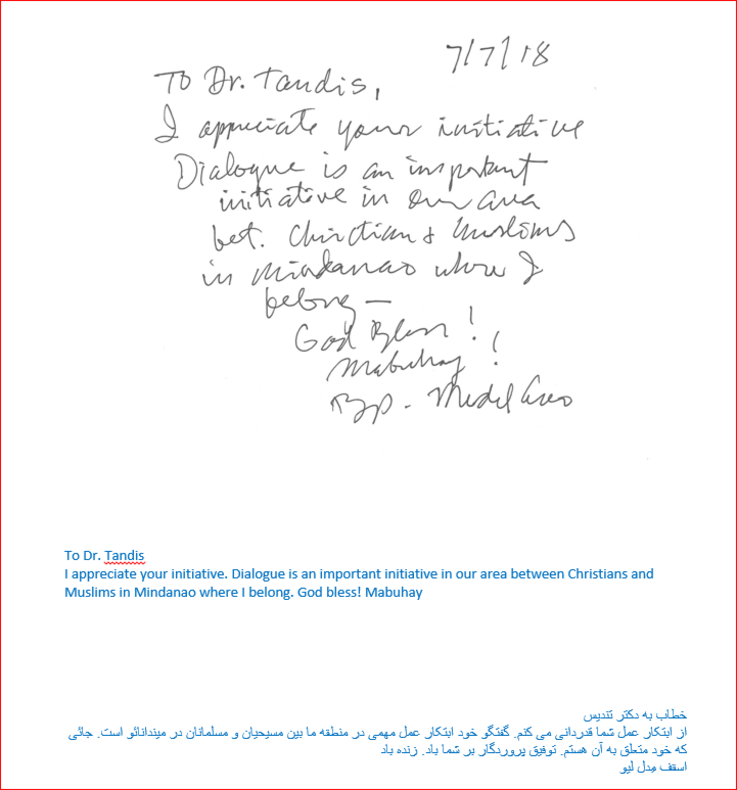 7/7/18
To Dr. Tandis,
I appreciate your initiative
Dialogue is an important
initiative in our area
bet. Christians & Muslims
in Mindanao where I
belong —
God Bless!
Mabuhay!
Bp.
To Dr. Tandis
I appreciate your initiative. Dialogue is an important initiative in our area between Christians and
Muslims in Mindanao where I belong. God bless! Mabuhay
خطاب به دکتر تندیس
از ابتکار عمل شما قدردانی می کنم. گفتگو خود ابتکار عمل مهمی در منطقه ما بین مسیحیان و مسلمانان در میندانائو است. جائی
که خود متعلق به آن هستم. توفیق پروردگار بر شما باد. زنده باد
اسقف مدل لیو